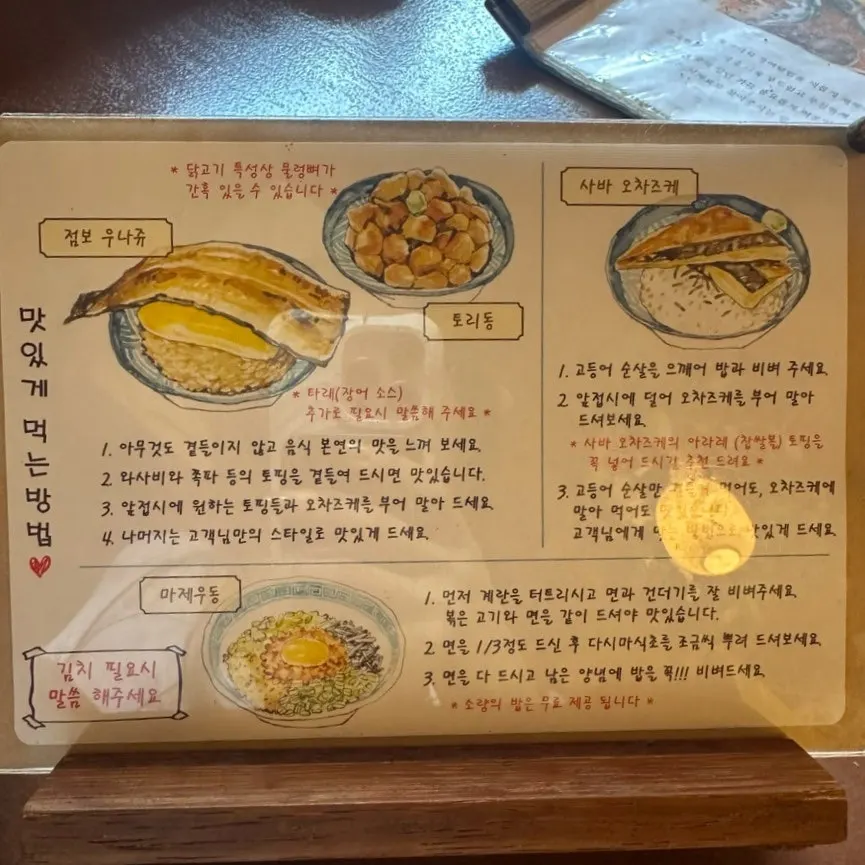 맛있게 먹는방법
* 닭고기 특성상 물렁뼈가
간혹 있을 수 있습니다 *
점보 우나쥬
토리동
* 타레(장어 소스)
추가로 필요시 말씀해 주세요 *
1. 아무것도 곁들이지 않고 음식 본연의 맛을 느껴 보세요.
2. 와사비와 쪽파 등의 토핑을 곁들여 드시면 맛있습니다.
3. 앞접시에 원하는 토핑들과 오차즈케를 부어 말아 드세요.
4. 나머지는 고객님만의 스타일로 맛있게 드세요.
사바 오차즈케
1. 고등어 순살을 으깨어 밥과 비벼 주세요.
2 앞접시에 덜어 오차즈케를 부어 말아
드셔보세요.
* 사바 오차즈케의 아라레 (찹쌀볼) 토핑을
꼭 넣어 드시기 추천 드려요 *
3. 고등어 순살만 먹어도, 오차즈케에
말아 먹어도
고객님에게 맞는 방법으로 맛있게 드세요.
마제우동
1. 먼저 계란을 터트리시고 면과 건더기를 잘 비벼주세요.
볶은 고기와 면을 같이 드셔야 맛있습니다.
2 면을 1/3정도 드신 후 다시마식초를 조금씩 뿌려 드셔보세요.
3. 면을 다 드시고 남은 양념에 밥을 꼭!!! 비벼드세요.
* 소량의 밥은 무료 제공 됩니다 *
김치 필요시
말씀 해주세요